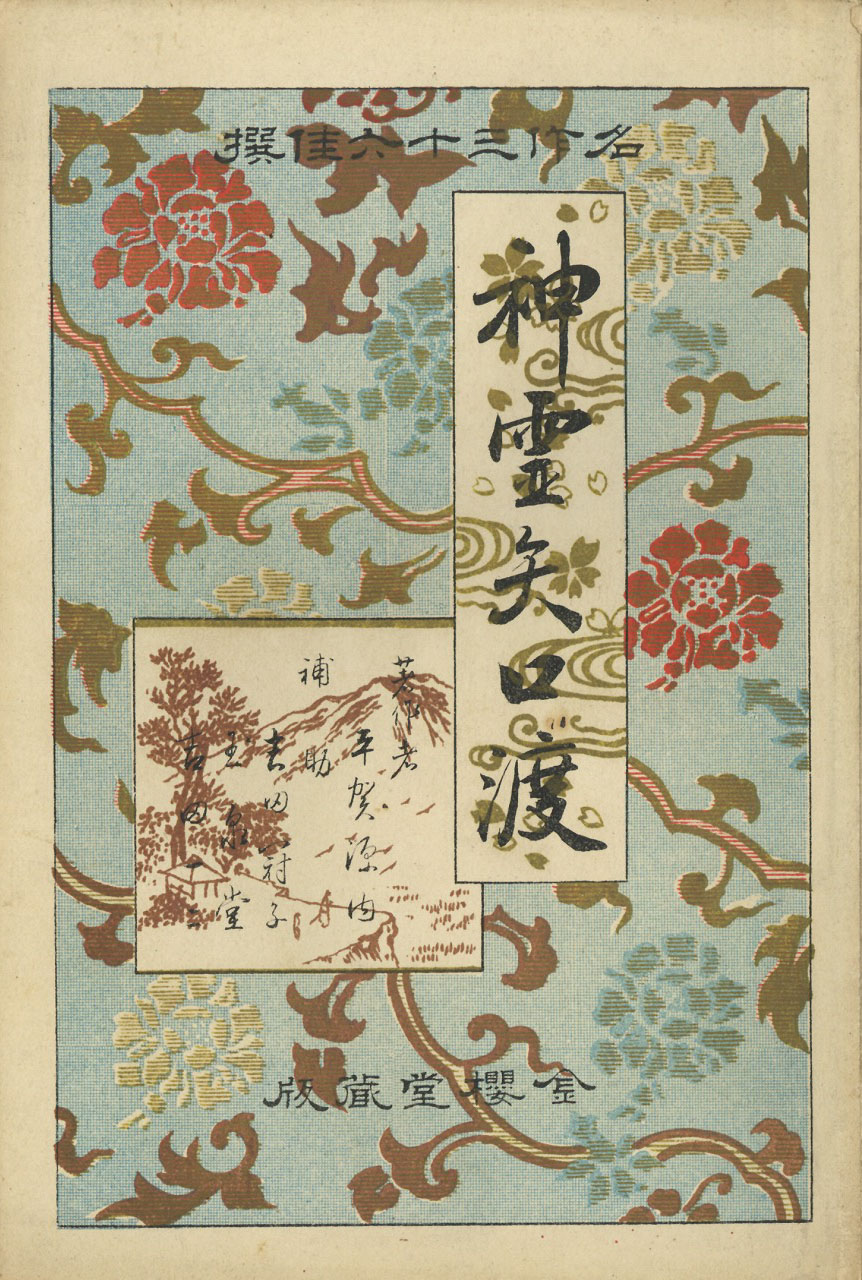 名作三十六佳撰
神霊矢口渡
著作者
平賀源内
補助
吉田冠子
玉泉堂
吉田二一
金櫻堂蔵版